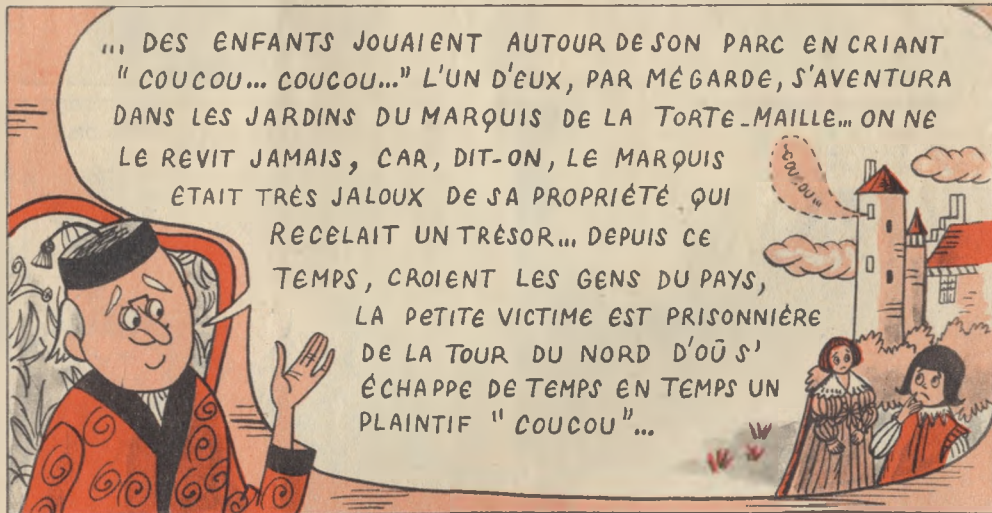 ... DES ENFANTS JOUAIENT AUTOUR DE SON PARC EN CRIANT
"COUCOU... COUCOU..." L'UN D'EUX, PAR MÉGARDE, S'AVENTURA
DANS LES JARDINS DU MARQUIS DE LA TORTE-MAILLE... ON NE
LE REVIT JAMAIS, CAR, DIT-ON, LE MARQUIS
ÉTAIT TRÈS JALOUX DE SA PROPRIÉTÉ QUI
RECELAIT UN TRÉSOR... DEPUIS CE
TEMPS, CROIENT LES GENS DU PAYS,
LA PETITE VICTIME EST PRISONNIÈRE
DE LA TOUR DU NORD D'OÙ S'
ÉCHAPPE DE TEMPS EN TEMPS UN
PLAINTIF "COUCOU"...
COUCOU...